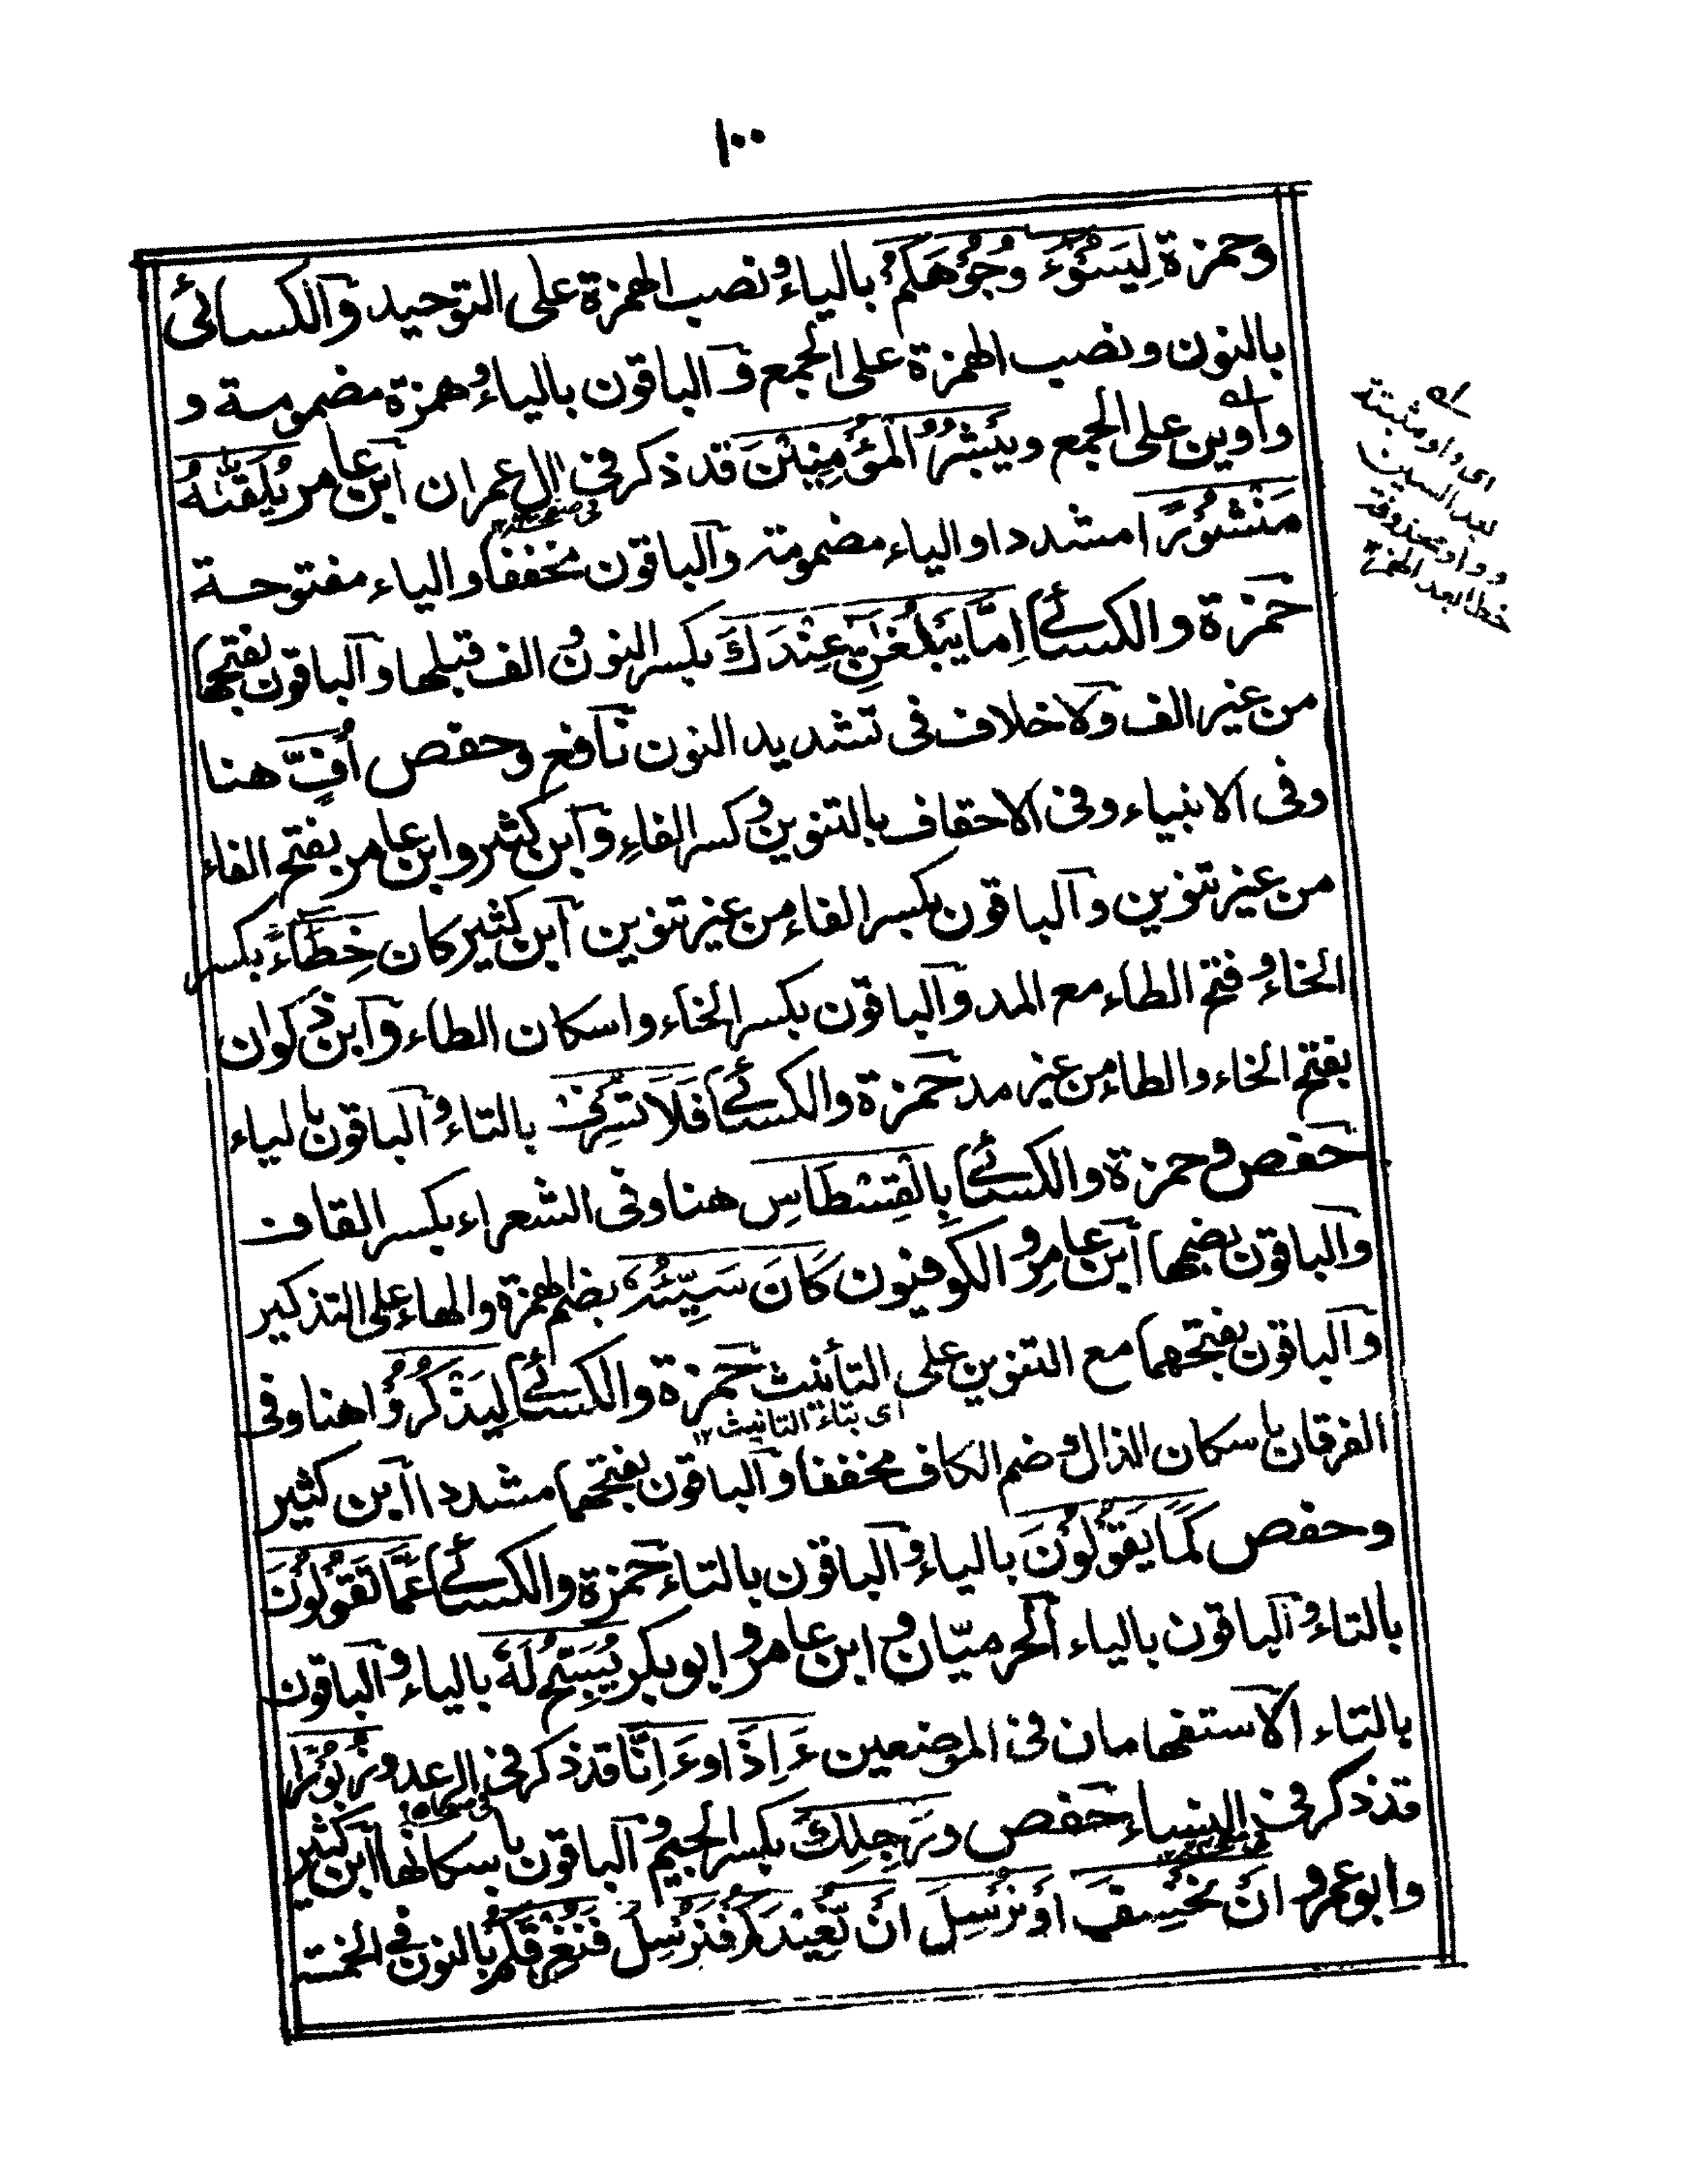 ١٠٠
وحمزة لِيَسُوْءَ وُجُوْهَكُمْ بالياء ونصب الهمزة على التوحيد والكسائى
بالنون ونصب الهمزة على الجمع والباقون بالياء وهمزة مضمومة و
واوين على الجمع ويَبْشُرُ الْمُؤْمِنِيْنَ قد ذكر فى ال عمران ابن عامر يُلَقّٰىهُ
مَنْشُوْرًا مشددا والياء مضمومة والباقون مخففا والياء مفتوحة
حمزة والكسائى اِمَّا يَبْلُغَانِّ عِنْدَكَ بكسر النون والف قبلها والباقون بفتحها
من غير الف ولا خلاف فى تشديد النون نافع وحفص اُفٍّ هنا
وفى الانبياء وفى الاحقاف بالتنوين وكسر الفاءِ وابن كثير وابن عامر بفتح الفاء
من غير تنوين والباقون بكسر الفاء من غير تنوين ابن كثير كان خِطَآءً بكسر
الخاء وفتح الطاء مع المد والباقون بكسر الخاء واسكان الطاء وابن ذكوان
بفتح الخاء والطاء من غير مد حمزة والكسائى فَلَا تُسْرِفْ بالتاء والباقون بالياء
حفص وحمزة والكسائى بِالْقِسْطَاسِ هنا وفى الشعراء بكسر القاف
والباقون بضمها ابن عامر والكوفيون كَانَ سَيِّئُهٗ بضم الهمزة والهاء على التذكير
والباقون بفتحهما مع التنوين على التأنيث حمزة والكسائى لِيَذْكُرُوْا هنا وفى
اى بتاء التانيث ١٢
الفرقان باسكان الذال وضم الكاف مخففا والباقون بفتحهما مشددا ابن كثير
وحفص كَمَا يَقُوْلُوْنَ بالياء والباقون بالتاء حمزة والكسائى عَمَّا تَقُوْلُوْنَ
بالتاء والباقون بالياء الحرميّان وابن عامر وابو بكر يُسَبِّحُ لَهٗ بالياء والباقون
بالتاء الاستفهامان فى الموضعين ءَاِذَا وءَاِنَّا قد ذكر فى الرعد وزُبُوْرًا
قد ذكر فى النساء حفص ورَجِلِكَ بكسر الجيم والباقون باسكانها ابن كثير
وابو عمرو اَنْ نَخْسِفَ اَوْ نُرْسِلَ اَنْ نُعِيْدَكُمْ فَنُرْسِلَ فَنُغْرِقَكُمْ بالنون فى الخمسة
اى واو مثبتة
بعد السين
و واو محذوفة
خطا بعد الهمزة